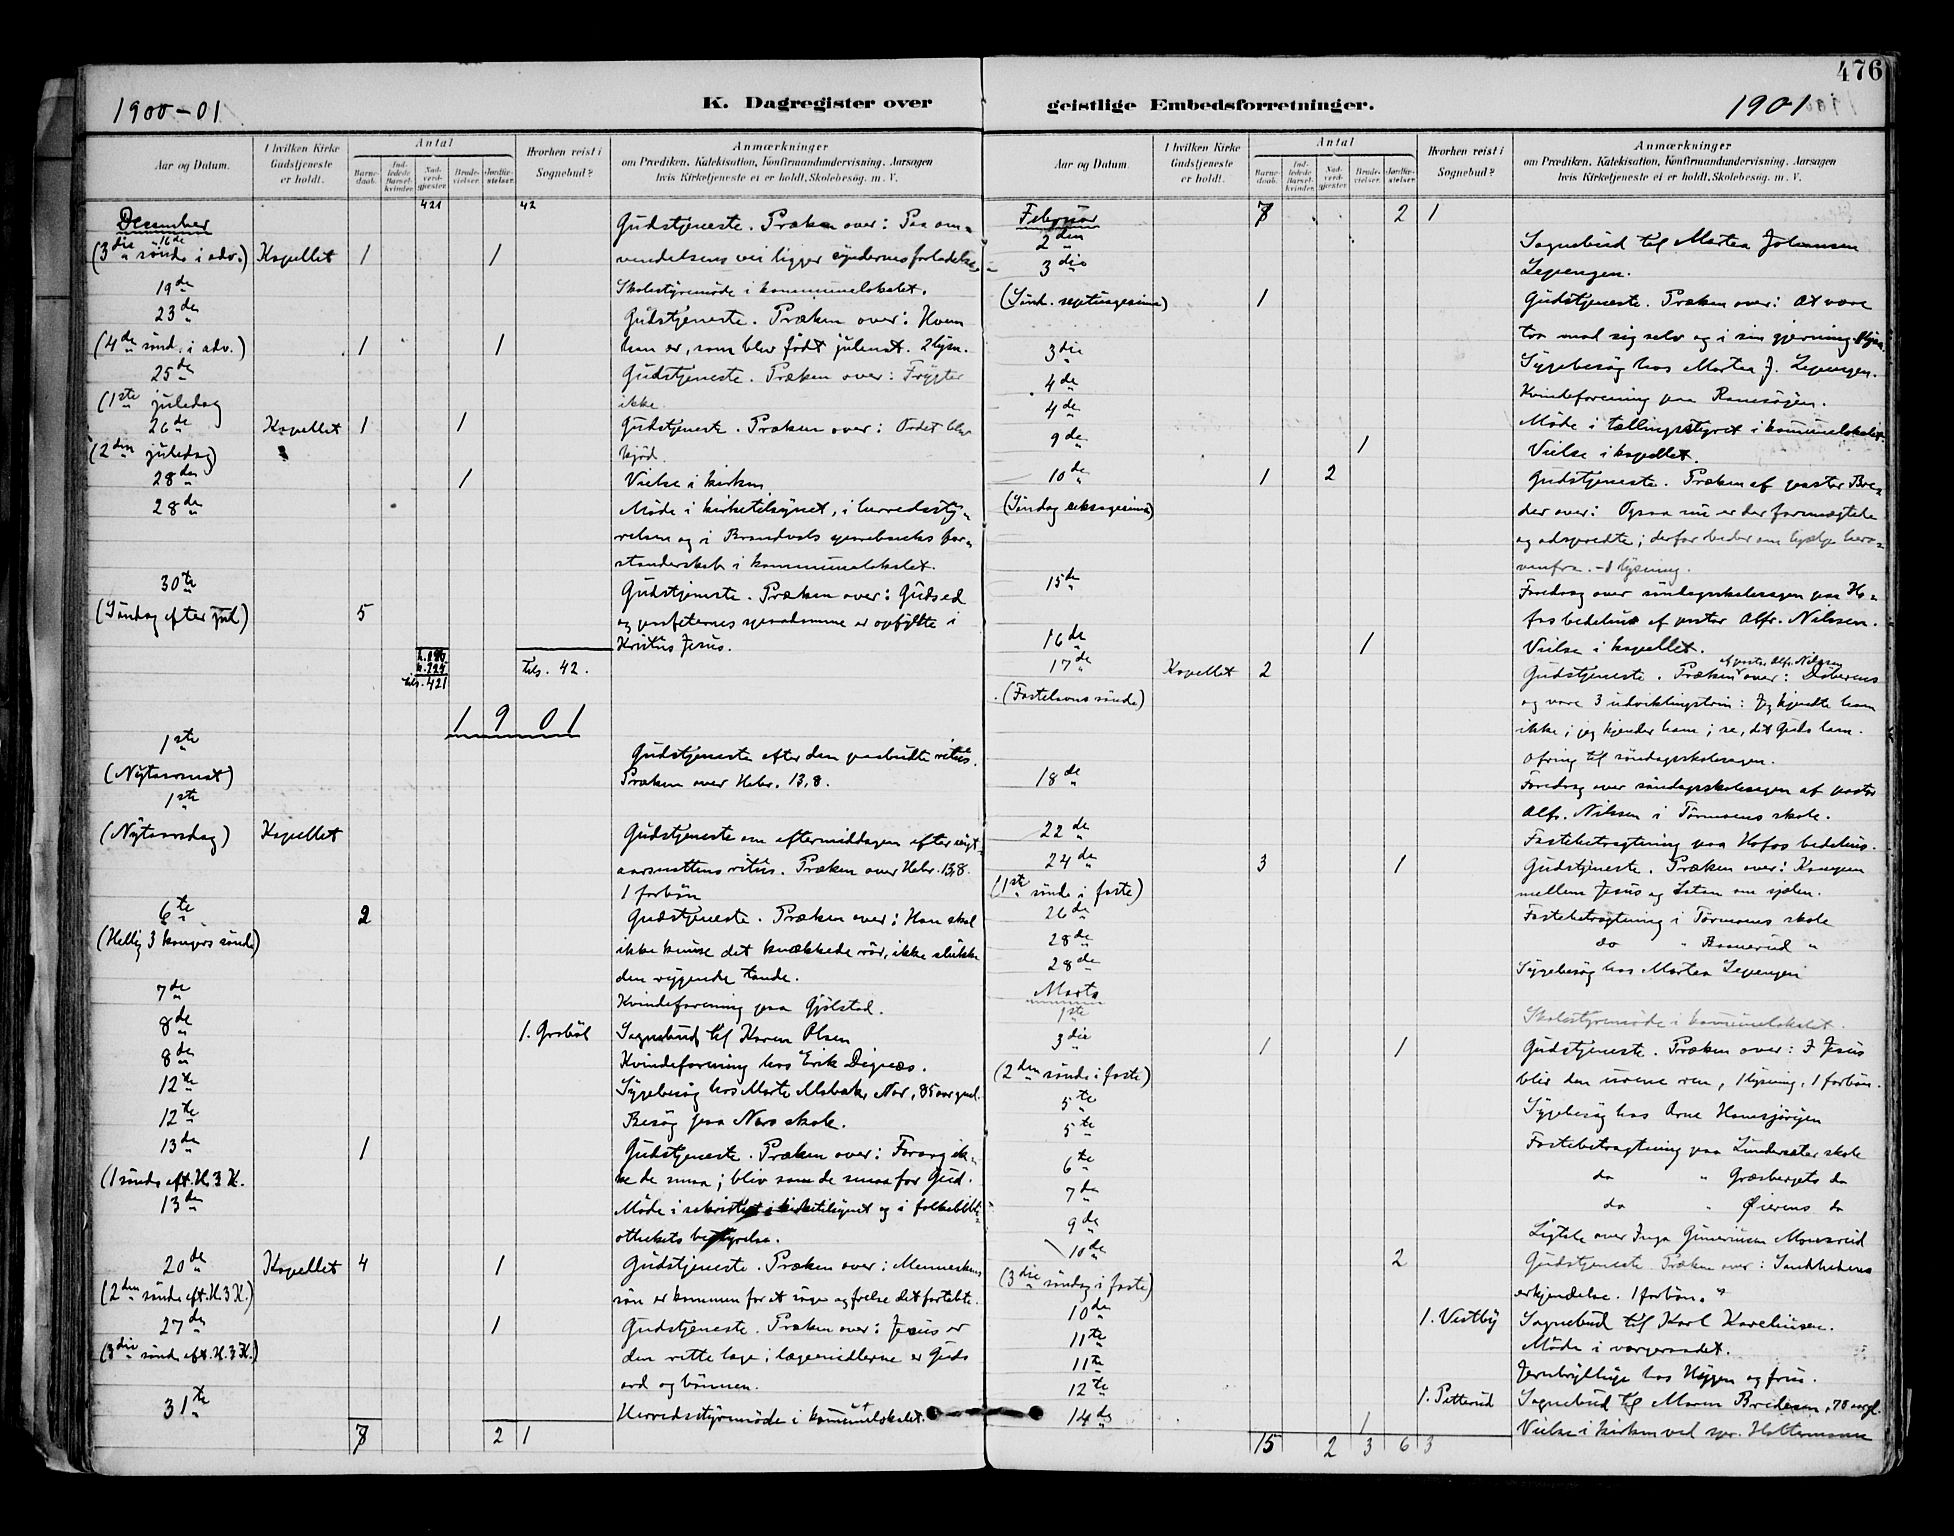 476
1900-01
K. Dagregister over
geistlige Embedsforretninger.
1901
Aar og Datum.
I hvilken Kirke Gudstjeneste er holdt.
Antal
Barnedaab.
Indledede Barselkvinder.
Nadverdgjester
Brudevielser.
Jordfæstelser.
Hvorhen reist i Sognebud?
Anmærkninger
om Prædiken, Katekisation, Konfirmandundervisning, Aarsagen
hvis Kirketjeneste ei er holdt, Skolebesøg. m. V.
421 42
December
16de Gudstjeneste. Præken over: Paa om-
(3die sønd. i adv.) Kapellet 1 1 vendelsens vei ligger syndernes forladelse
19de Skolestyremøde i kommunelokalet.
23de Gudstjeneste. Præken over: Hvem
(4de sønd. i adv.) 1 1 han er, som blev født julenat. 2 lysn.
25de Gudstjeneste. Præken over: Frygter
(1ste juledag ikke.
26de Kapellet 1 1 Gudstjeneste. Præken over: Ordet blev
(2den juledag) kjød.
28de 1 Vielse i kirken
28de Møde i kirketilsynet, i herredssty-
relsen og i Brandvals sparebanks for-
standerskab i kommunelokalet.
30te Gudstjeneste. Præken over: Guds ed
(Søndag efter jul) 5 og profeternes spaadomme er opfyldte i
Kristus Jesus.
tils. 421 tils. 42.
1901
1ste Gudstjeneste efter den paabudte ritus.
(Nytaarsnat) Præken over Hebr. 13,8.
1ste
(Nytaarsdag) Kapellet Gudstjeneste om eftermiddagen efter nyt-
aarsnattens ritus. Præken over Hebr. 13,8.
1 forbøn
6te 2 Gudstjeneste. Præken over: Han skal
(Hellig 3 kongers sønd.) ikke knuse det knækkede rør, ikke slukke
den rygende tande.
7de Kvindeforening paa Gjølstad.
8de 1. Grobøl Sognebud til Karen Olsen
8de Kvindeforening hos Erik Dignæs.
12te Sygebesøg hos Marte Nor, 85 aar gml.
12te Besøg paa Nors skole.
13de 1 Gudstjeneste. Præken over: Foragt ik-
(1 sønd. eft. H. 3 K. ke de smaa; bliv som de smaa for Gud.
13de Møde i sakristiet i kirketilsynet og i folkebibli-
othekets bestyrelse.
20de Kapellet 4 1 Gudstjeneste. Præken over: Menneskens
(2den sønd. eft. H. 3 K.) søn er kommen for at søge og frelse det fortabte.
27de 1 Gudstjeneste. Præken over: Jesus er
(3die sønd. eft. H. 3 K.) den rette læge; lægemidlerne er Guds
ord og bønnen.
31te Herredsstyremøde i kommunelokalet.
8 2 1
Aar og Datum.
I hvilken Kirke Gudstjeneste er holdt.
Antal
Barnedaab.
Indledede Barselkvinder.
Nadverdgjester
Brudevielser.
Jordfæstelser.
Hvorhen reist i Sognebud?
Anmærkninger
om Prædiken, Katekisation, Konfirmandundervisning, Aarsagen
hvis Kirketjeneste ei er holdt, Skolebesøg. m. V.
Februar 8 2 1
2den Sognebud til Martea Johansen
3die Lepengen.
(Sønd. septuagesima) 1 Gudstjeneste. Præken over: At være
tro mod sig selv og i sin gjerning.
3die Sygebesøg hos Martea J. Lepengen.
4de Kvindeforening paa
4de Møde i tællingsstyret i kommunelokalet
9de 1 Vielse i kapellet.
10de 1 2 Gudstjeneste. Præken af pastor Bre-
(Søndag seksagesima) der over: Ogsaa nu er der formægtede
og adspredte; derfor beder om hjælp hero-
venfra. - 1 lysning.
15de Foredrag over søndagsskolesagen paa Ho-
fos bedehus af pastor Alfr. Nilssen.
16de 1 Vielse i kapellet.
17de Kapellet 2 Gudstjeneste. Præken af pastor Alfr. Nilssen over: Døberens
(Fastelavns sønda) og vore 3 udviklingstrin: Jeg kjendte ham
ikke; jeg kjender ham; se, det Guds lam.
Ofring til søndagsskolesagen.
18de Foredrag over søndagsskolesagen af pastor
Alfr. Nilssen i Tørmoens skole.
22de Fastebetragtning paa Hofos bedehus.
24de 3 1 Gudstjeneste. Præken over: Kampen
(1ste sønd. i faste) mellem Jesus og Satan om sjælen.
26de Fastebetragtning i Tørmoens skole
28de do " "
28de Sygebesøg hos Martea Lepengen
Marts
1ste Skolestyremøde i kommunelokalet.
3die 1 1 Gudstjeneste. Præken over: I Jesus
(2den sønd. i faste) blir den urene ren, 1 lysning, 1 forbøn.
5te Sygebesøg hos Arne
5te Fastebetragtning paa Lundersæter skole
6te do " Græsbergets do
7de do " Øierens do
9de Ligtale over Inga
10de 2 Gudstjeneste. Præken over: Sandhedens
(3die søndag i faste) erkjendelse. 1 forbøn.
10de 1. Vestby Sognebud til Karl Karelinsen.
11te Møde i værgeraadet.
11te Jernbryllup hos Hyggen og frue.
12te 1. Petterud Sognebud til Maren Bredesen, 78 aargl.
14de 1 Vielse i kirken ved spr. Holtermann
15 2 3 6 3